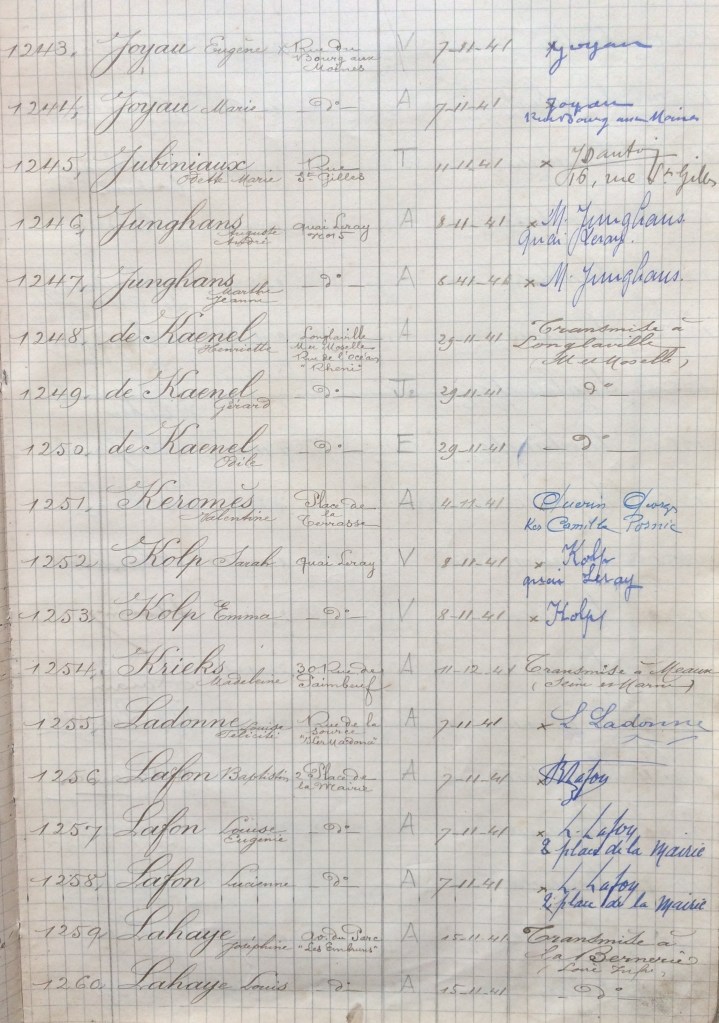 1243. Joyau Eugène Rue du Bourg aux Moines V 7-11-41 x Joyau
1244. Joyau Marie - d° - A 7-11-41 Joyau
Rue Bourg aux Moines
1245. Jubiniaux Odette Marie Rue St Gilles T 11-11-41 x
16, rue St Gilles
1246. Junghans Auguste André quai Leray n° 15 A 8-11-41 x M. Junghans
quai Leray.
1247. Junghans Marthe Jeanne - d° - A x M. Junghans.
1248. de Kaenel Henriette Longlaville M et Moselle Rue de l'Océan "Rhéni" A 29-11-41 Transmise à
Longlaville
(M et Moselle)
1249. de Kaenel Gérard - d° - J. 29-11-41 - d° -
1250. de Kaenel Odile - d° - E 29-11-41 - d° -
1251. Keromès Valentine Place de la Terrasse A 4-11-41 Guerin
Kes Camilla
1252. Kolp Sarah quai Leray V 8-11-41 x Kolp
quai Leray
1253. Kolp Emma - d° - V 8-11-41 x Kolp
1254. Krieks Madeleine 30 Rue de Paimbœuf A 11-12-41 Transmise à Meaux
(Seine et Marne)
1255. Ladonne Louise Félicité Rue de la Source A 7-11-41 x L Ladonne
1256. Lafon Baptistin 2 Place de la Mairie A 7-11-41 BLafon
1257. Lafon Louise Eugénie - d° - A 7-11-41 x L. Lafon
2 place de la Mairie
1258. Lafon Lucienne - d° - A 7-11-41 x L. Lafon
2 place de la Mairie
1259. Lahaye Joséphine Av. du Parc "Les Embruns" A 15-11-41 Transmise à
la Bernerie
(Loire Infre)
1260. Lahaye Louis d° A 15-11-41 - d° -